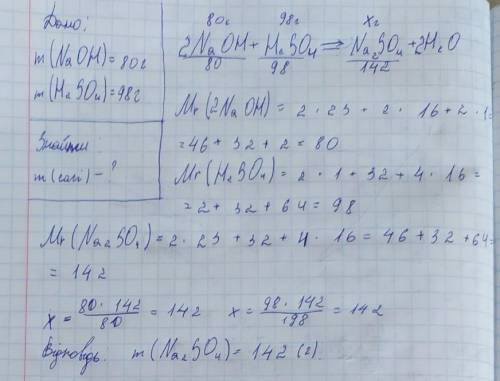 Дано:
m(NaOH)=80г
m(H₂SO₄)=98г
Знайти:
m(солі)-?
80г 98г xг
2NaOH+H₂SO₄⇒Na₂SO₄+2H₂O
80 98 142
Mr(2NaOH)=2·23+2·16+2·1=
=46+32+2=80
Mr(H₂SO₄)=2·1+32+4·16=
=2+32+64=98
Mr(Na₂SO₄)=2·23+32+4·16=46+32+64=
=142
x=80·142/80=142 x=98·142/98=142
Відповідь. m(Na₂SO₄)=142(г).